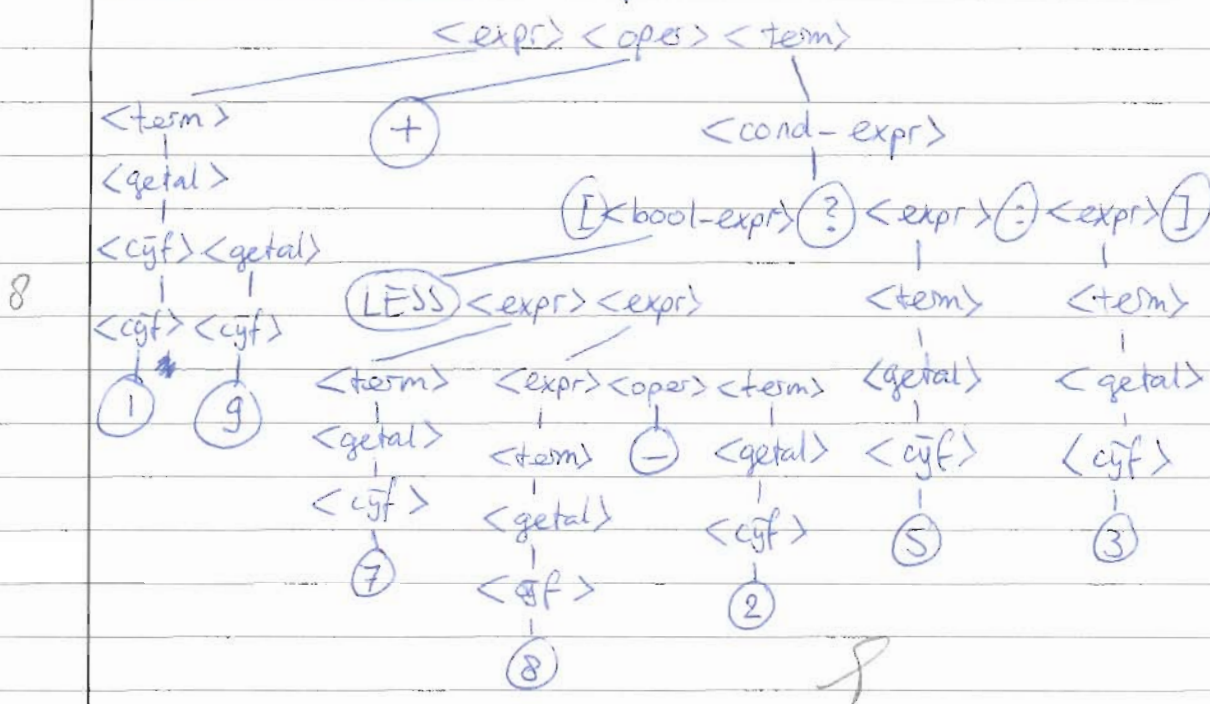 <expr> <oper> <term>
<term> + <cond-expr>
<getal>
[ <bool-expr> ? <expr> : <expr> ]
<cijf> <getal>
8 LESS <expr> <expr> <term> <term>
<cijf> <cijf>
<term> <expr> <oper> <term> <getal> <getal>
1 9
<getal> <term> - <getal> <cijf> <cijf>
<cijf> <getal> <cijf> 5 3
7 <cijf> 2
8